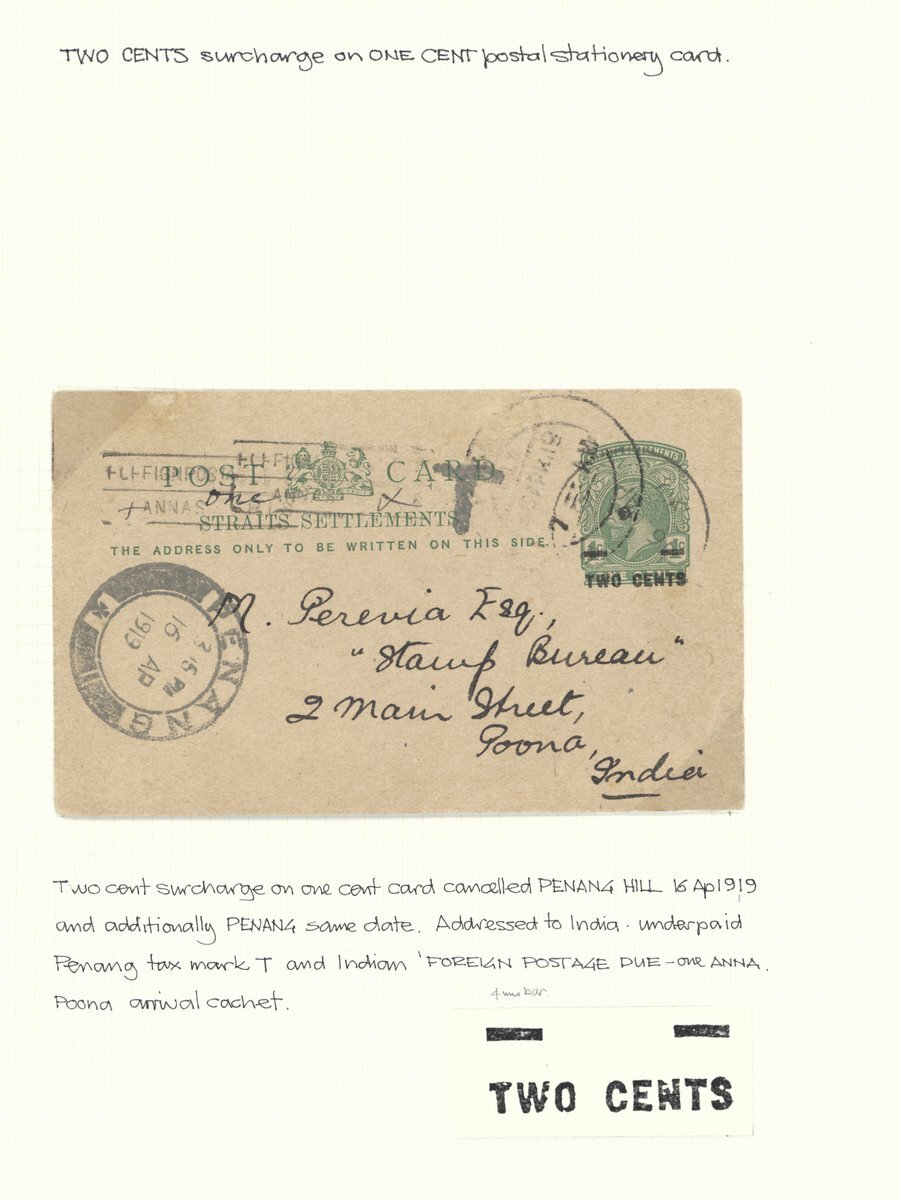 TWO CENTS surcharge on ONE CENT postal stationery card.
POST CARD
one
ANNAS
T
STRAITS SETTLEMENTS
THE ADDRESS ONLY TO BE WRITTEN ON THIS SIDE.
1c 1c
TWO CENTS
PENANG
3.15 PM
16 AP
1919
M. Perevia Esq.,
"Stamp Bureau"
2 Main Street,
Poona,
India
Two cent surcharge on one cent card cancelled PENANG HILL 16 Ap 1919
and additionally PENANG same date. Addressed to India. underpaid
Penang tax mark T and Indian 'FOREIGN POSTAGE DUE - one ANNA.
Poona arrival cachet.
4mm bar.
TWO CENTS